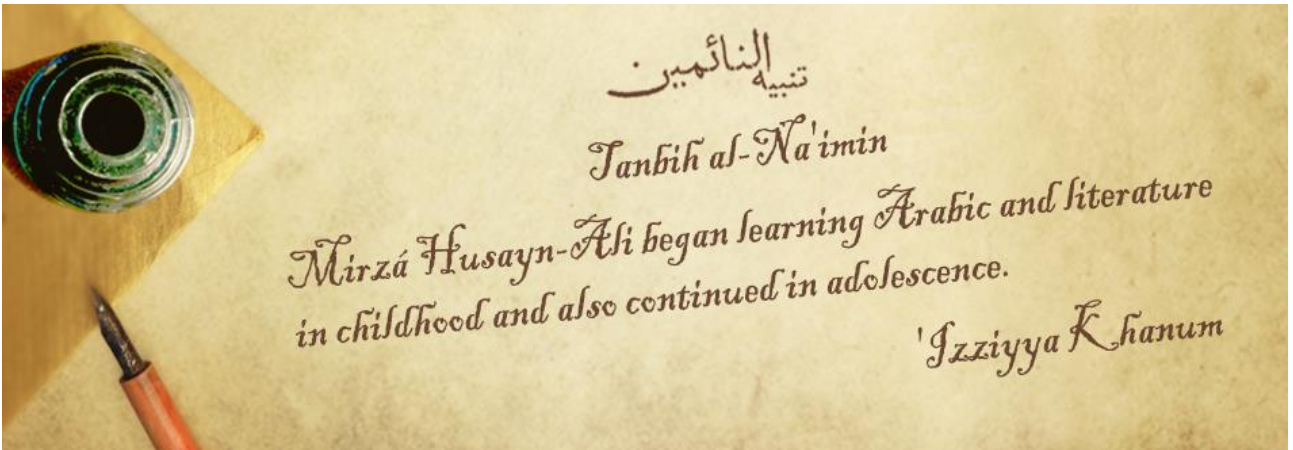 تنبيه النائمين
Tanbih al-Na'imin
Mirzá Husayn-Ali began learning Arabic and literature
in childhood and also continued in adolescence.
'Izziyya Khanum